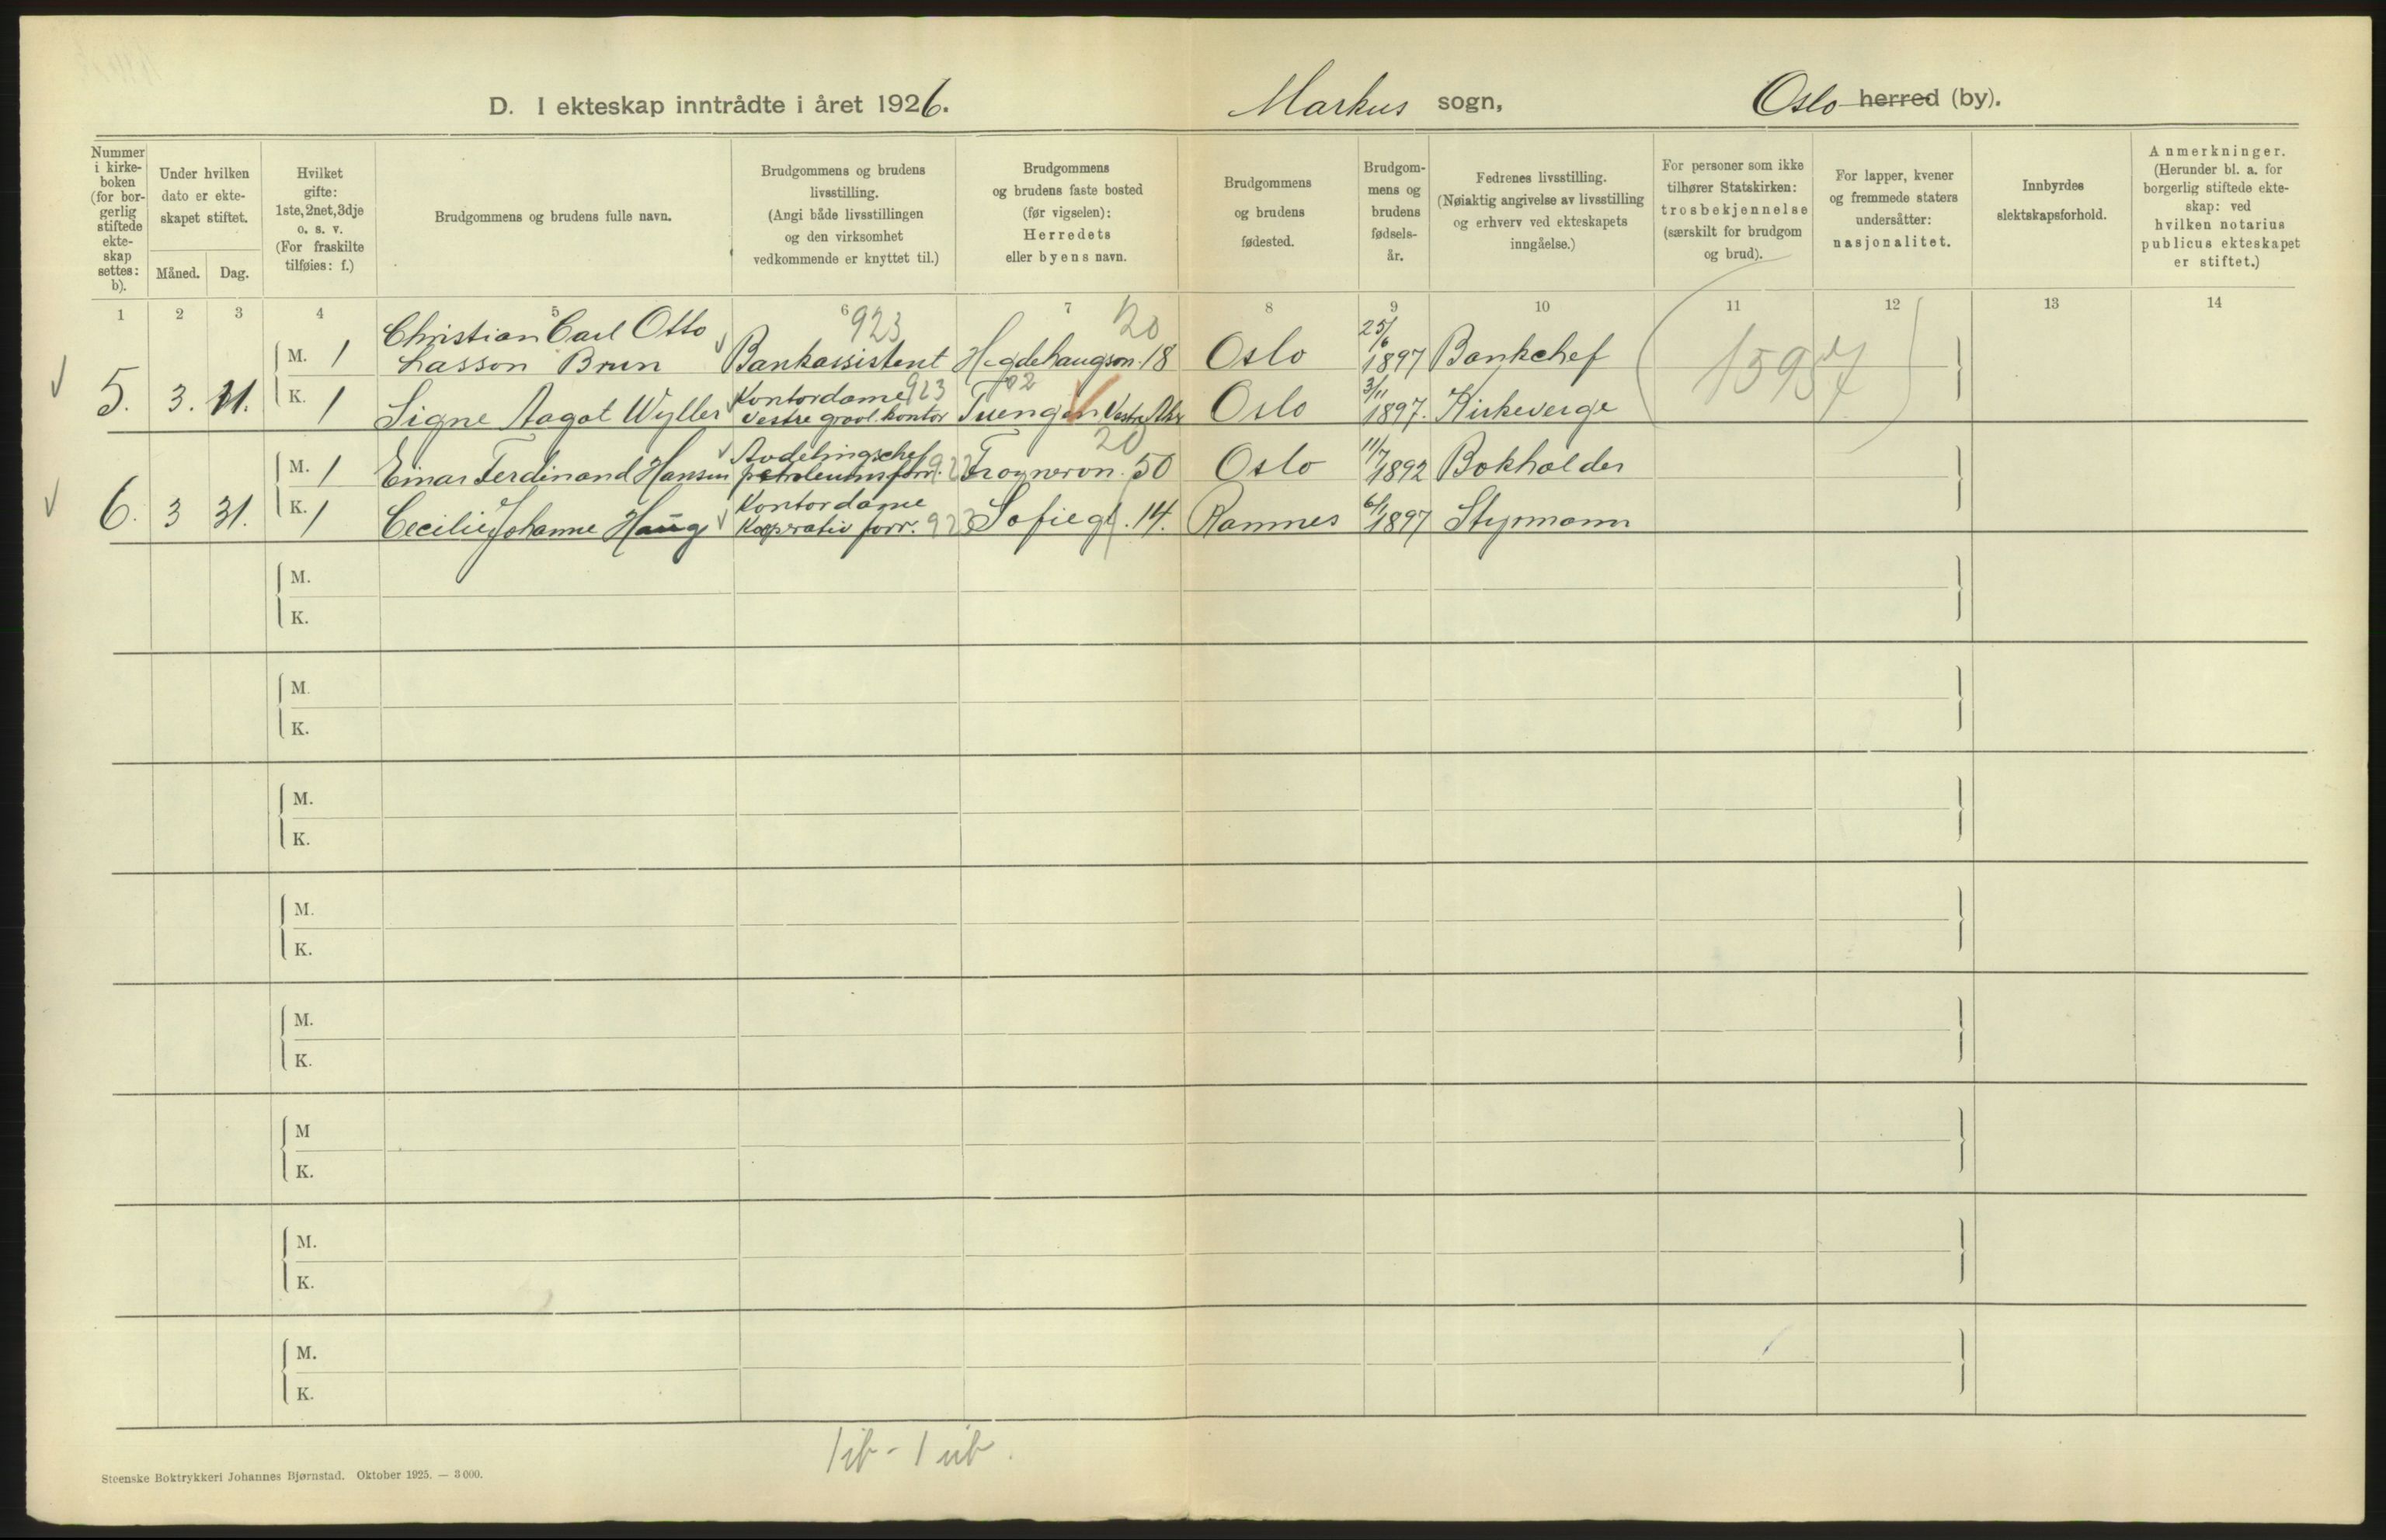 D. I ekteskap inntrådte i året 1926.
Markus sogn,
Oslo herred (by).
Nummer
i kirke-
boken
(for bor-
gerlig
stiftede
ekte-
skap
settes:
b).
Under hvilken
dato er ekte-
skapet stiftet.
Måned. Dag.
Hvilket
gifte:
1ste, 2net, 3dje
o. s. v.
(For fraskilte
tilføies: f.)
Brudgommens og brudens fulle navn.
Brudgommens og brudens
livsstilling.
(Angi både livsstillingen
og den virksomhet
vedkommende er knyttet til.)
Brudgommens
og brudens faste bosted
(før vigselen):
Herredets
eller byens navn.
Brudgommens
og brudens
fødested.
Brudgom-
mens og
brudens
fødsels-
år.
Fedrenes livsstilling.
(Nøiaktig angivelse av livsstilling
og erhverv ved ekteskapets
inngåelse.)
For personer som ikke
tilhører Statskirken:
trosbekjennelse
(særskilt for brudgom
og brud).
For lapper, kvener
og fremmede staters
undersåtter:
nasjonalitet.
Innbyrdes
slektskapsforhold.
Anmerkninger.
(Herunder bl. a. for
borgerlig stiftede ekte-
skap: ved
hvilken notarius
publicus ekteskapet
er stiftet.)
1 2 3 4 5 6 7 8 9 10 11 12 13 14
923 20
Christian Carl Otto 25/6
M. 1 Lasson Brun Bankassistent Hegdehaugsvn. 18 Oslo 1897 Bankchef
1595
Kontordame 923 02 3/11
5. 3. 11. K. 1 Signe Aagot Wyller Vestre gravl. kontor Tuengen Vestre Aker Oslo 1897. Kirkeverge
Avdelingschef 20 11/7
M. 1 Einar Ferdinand Hansen petroleumsforr. Frognervn. 50 Oslo 1892 Bokholder
Kontordame
6. 3 31. K. 1 Cecilie Johanne Haug Kooperativ forr. Sofiegt. 14. Ramnes 6/1 1897 Styrmann
M.
K.
M.
K.
M.
K.
M.
K.
M.
K.
M
K.
M.
K.
M.
K.
1 ib - 1 ub.
Steenske Boktrykkeri Johannes Bjørnstad. Oktober 1925. — 3000.